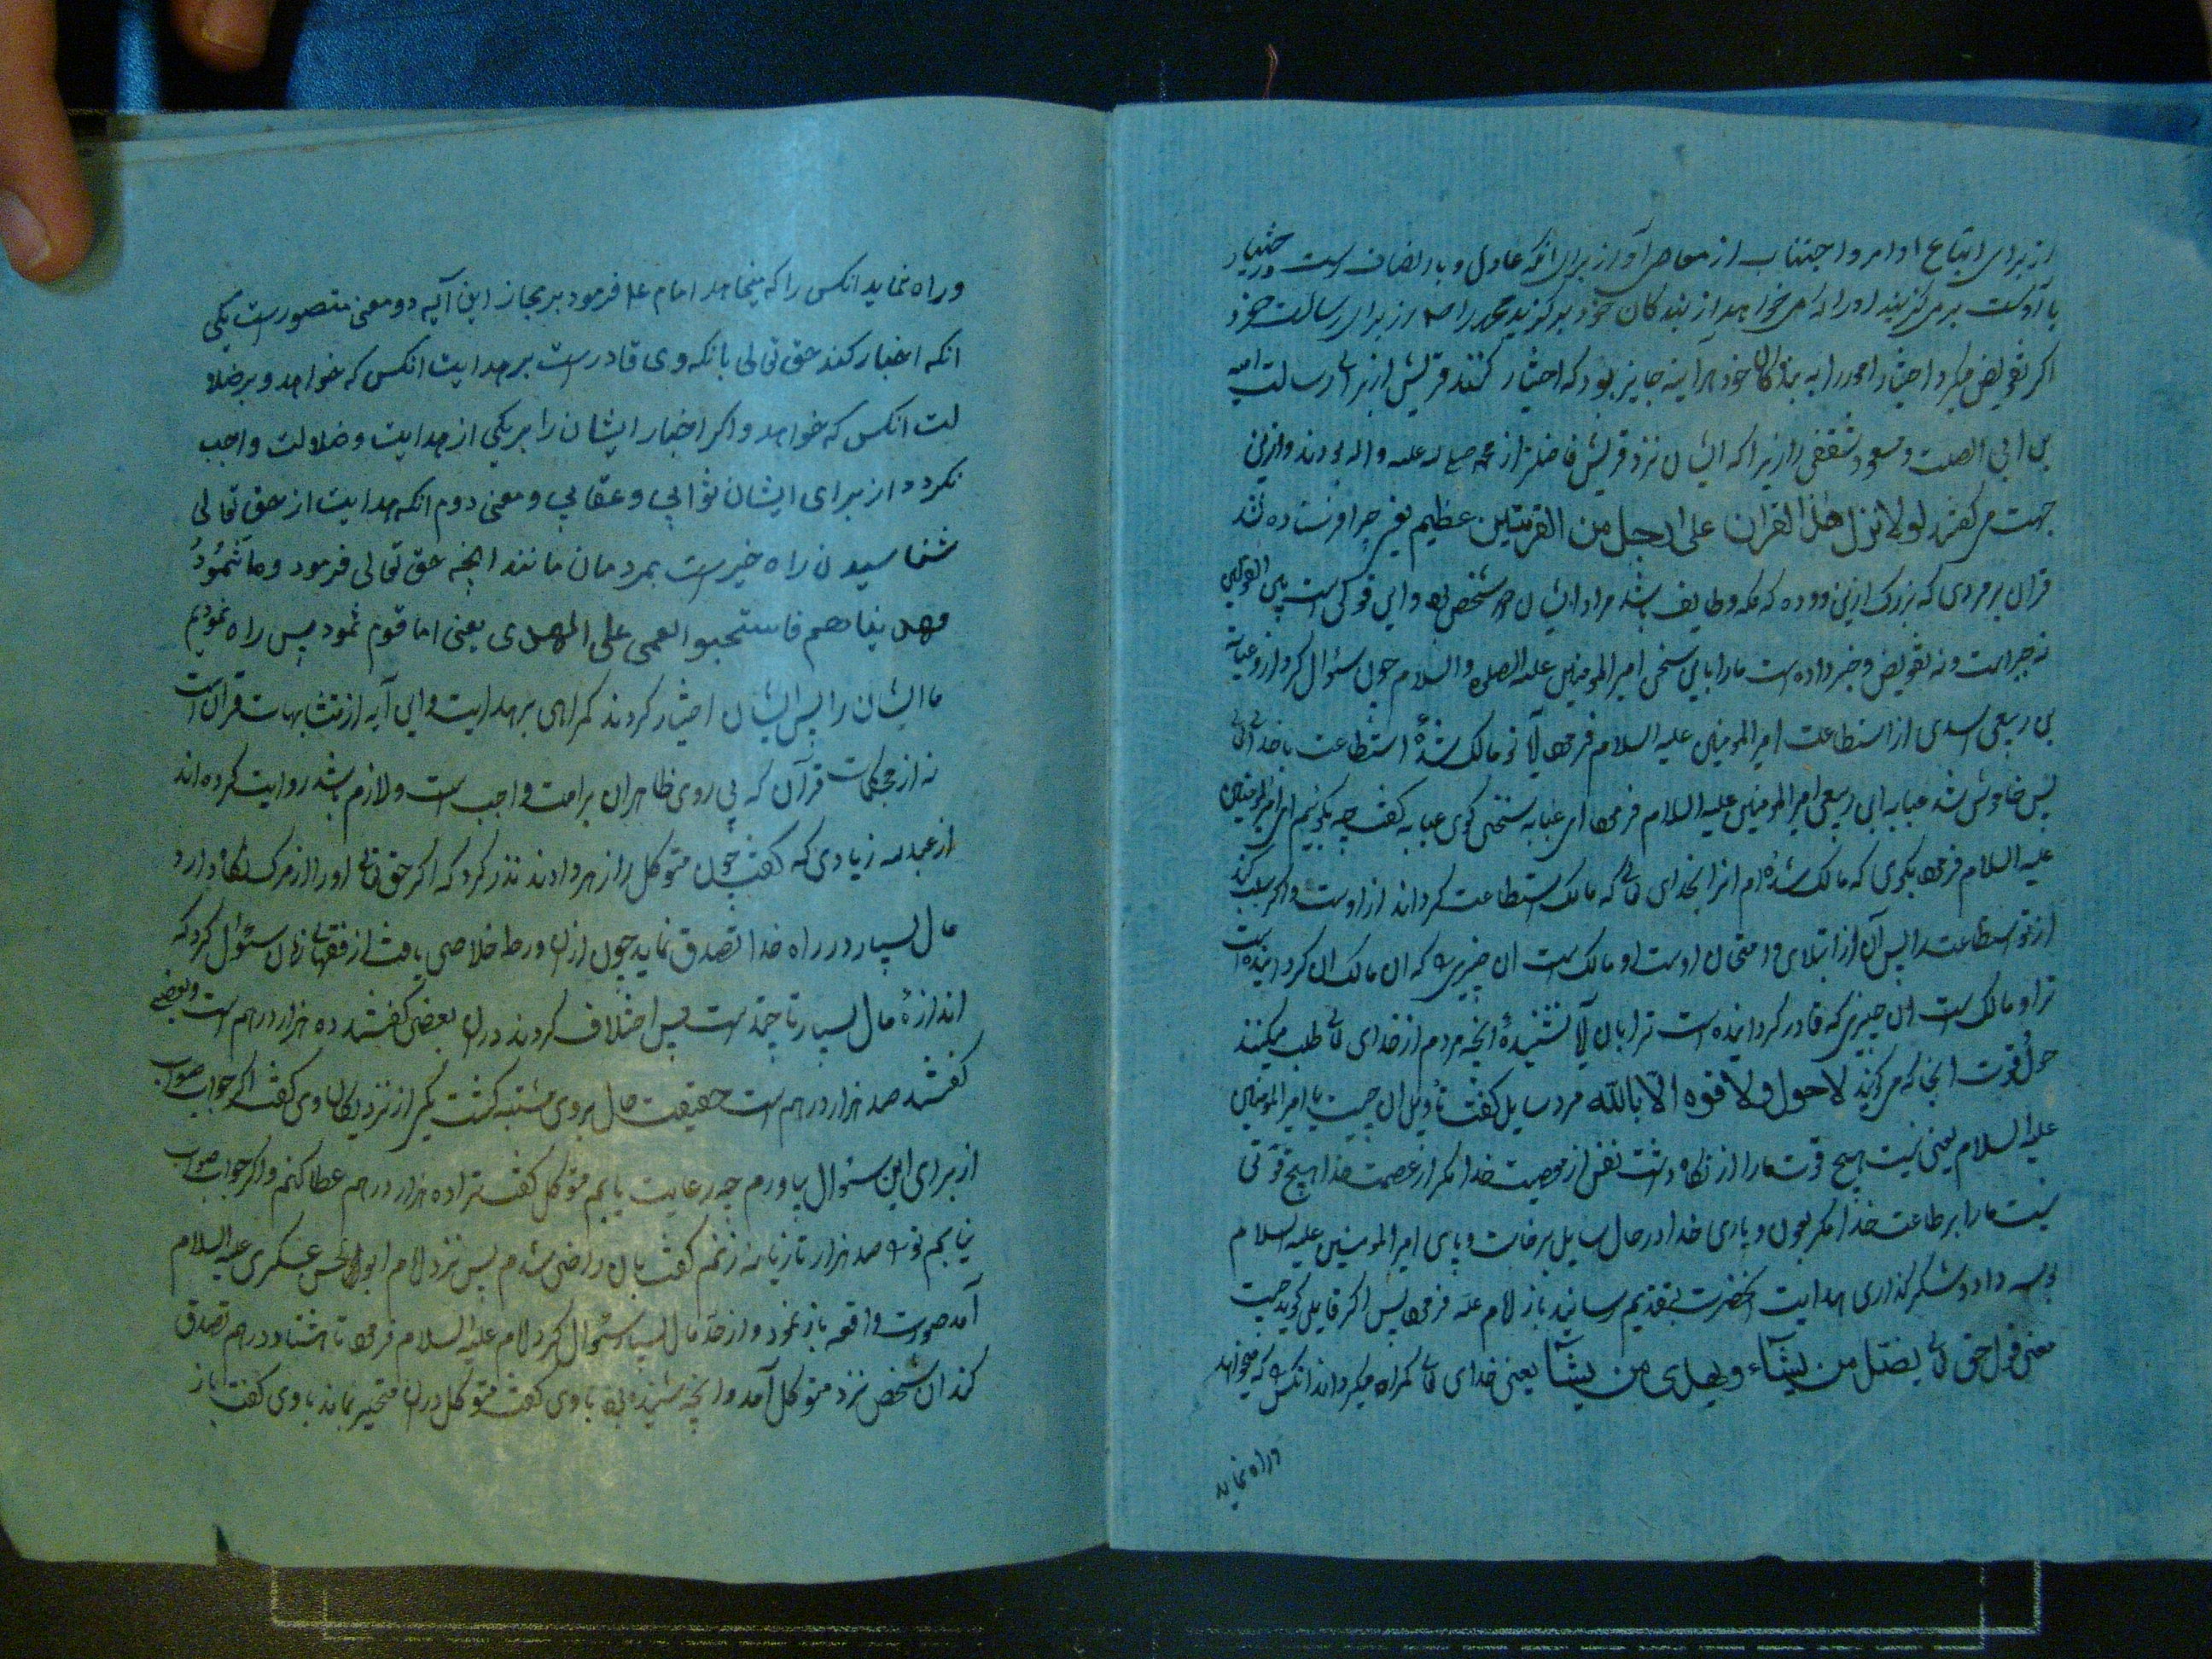 از برای اتباع اوامر و اجتناب از معاصی آورا از برای انکه عادل و با انصاف است و اختیار
با آوست بر می گزیند اورا که می خواهد از بندگان خود بر گزید محمد را صم از برای رسالت خود
اکر تفویض میکرد اختیار امور را به بندکان خود هر آینه جایز بود که اختیار کنند قریش از برای رسالت امیه
بن ابی الصلت و مسعود ثقفی را زیرا که ایشان نزد قریش فاضلتر از محمد صلی الله علیه و اله بودند و ازین
جهت می کفتند لولا نزل هذا القران علی رجل من القریتین عظیم یعنی چرا فرستاده نشد
قران بر مردی که بزرک ازین دو ده که مکه و طایف باشد مراد ایشان دو شخص بود و این قولی است بین القولین
نه جبر است و نه تفویض و خبر داده است ما را باین سخن امیر المومنین علیه الصلوة والسلام چون سئوال کرد ازو عبایة
بن ربیعی اسدی از استطاعت امیر المومنین علیه السلام فرمود آیا تو مالک شدۀ استطاعت با خدای تعالی
پس خاموش شد عبایه ابن ربیعی امیر المومنین علیه السلام فرمود ای عبایه سخنی کوی عبایه کفت چه بکویم ای امیر المومنین
علیه السلام فرمود بکوی که مالک شده ام انرا بخدای تعالی که مالک استطاعت کرداند از اوست و اکر سلب کند
از تو استطاعت را پس آن از ابتلای و امتحان اوست او مالک است ان چیزی را که ان مالک ان کردانیده است
ترا و مالک است ان چیزی که قادر کردانیده است ترا بان آیا نشنیدۀ انچه مردم از خدای تعالی طلب میکنند
حول و قوت انجا که می کویند لا حول و لا قوه الّا بالله مرد سایل کفت تأویل ان چیست یا امیر المومنین
علیه السلام یعنی نیست هیچ قوت ما را از نکاه داشت نفس از معصیت خدا مکر از عصمت خدا هیچ قوّتی
نیست ما را بر طاعت خدا مکر بعون و یاری خدا در حال سایل برخاست و پای امیر المومنین علیه السلام
بوسه داد و شکر کذاری هدایت انحضرت بتقدیم رسانید باز امام علیه فرمود پس اکر قایلی کوید چیست
معنی قول حق تعالی یضل من یشآء و یهدی من یشآ یعنی خدای تعالی کمراه میکرداند انکس را که میخواهد
وراه نماید
وراه نماید انکس را که میخواهد امام ع فرمود بر مجاز این آیه دو معنی متصور است یکی
انکه اخبار کند حق تعالی بانکه وی قادر است بر هدایت انکس که خواهد و بر ضلا
لت انکس که خواهد و اکر اجبار ایشان را بر یکی از هدایت و ضلالت واجب
نکردد از برای ایشان ثوابی و عقابی و معنی دوم انکه هدایت از حق تعالی
شناسیدن راه خیر است بمردمان مانند انچه حق تعالی فرمود و ما ثَمُودُ
فهدیناهم فاستحبوا العمی علی الهدی یعنی اما قوم ثمود پس راه نمودیم
ما ایشان را پس ایشان اختیار کردند کمراهی بر هدایت و این آیه از متشابهات قران است
نه از محکمات قرآن که پی روی ظاهر ان بر امت واجب است و لازم باشد روایت کرده اند
از عبد الله زیادی که کفت چون متوکل را زهر دادند نذر کرد که اکر حق تعالی او را از مرک نکاه دارد
مال بسیار در راه خدا تصدق نماید چون ازان ورطه خلاصی یافت از فقهای زمان سئوال کرد که
اندازۀ مال بسیار تا چند است پس اختلاف کردند دران بعضی کفتند ده هزار درهم است و بعضی
کفتند صد هزار درهم است حقیقت حال بر وی مشتبه کشت یکی از نزدیکان وی کفت اکر جواب صواب
از برای این سئوال بیاورم چه رعایت یابم متوکل کفت ترا ده هزار درهم عطا کنم و اکر جواب صواب
نیابم تو را صد هزار تازیانه زنم کفت بان راضی شدم پس نزد امام ابو الحسن عسکری علیه السلام
آمد صورت واقعه باز نمود و از حد مال بسیار سئوال کرد امام علیه السلام فرمود تا هشتاد درهم تصدق
کند ان شخص نزد متوکل آمد و انچه شنیده بود با وی کفت متوکل دران متحیر بماند با وی کفت باز